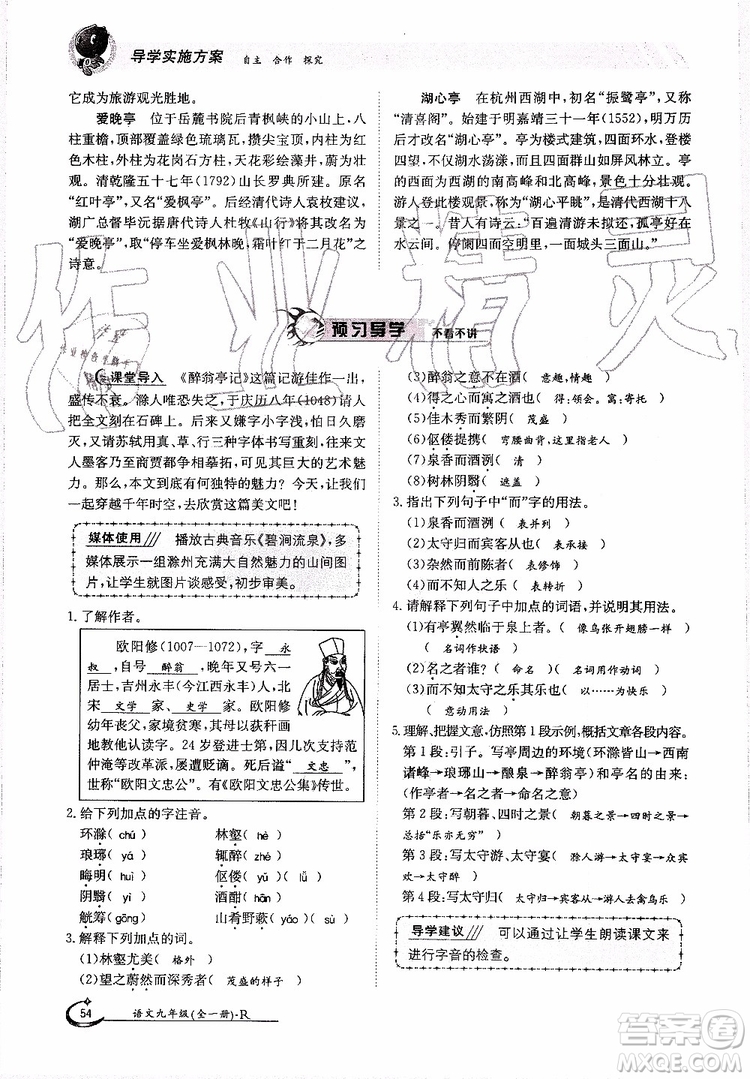 导学实施方案 自主 合作 探究
它成为旅游观光胜地。
爱晚亭 位于岳麓书院后青枫峡的小山上，八
柱重檐，顶部覆盖绿色琉璃瓦，攒尖宝顶，内柱为红
色木柱，外柱为花岗石方柱，天花彩绘藻井，蔚为壮
观。清乾隆五十七年（1792）山长罗典所建。原名
“红叶亭”，又名“爱枫亭”。后经清代诗人袁枚建议，
湖广总督毕沅据唐代诗人杜牧《山行》将其改名为
“爱晚亭”，取“停车坐爱枫林晚，霜叶红于二月花”之
诗意。
湖心亭 在杭州西湖中，初名“振鹭亭”，又称
“清喜阁”。初建于明嘉靖三十一年（1552），明万历
后才改名“湖心亭”。亭为楼式建筑，四面环水，登楼
四望，不仅湖水荡漾，而且四面群山如屏风林立。亭
的西面为西湖的南高峰和北高峰，景色十分壮观。
游人登此楼观景，称为“湖心平眺”，是清代西湖十八
景之一。昔人有诗云：“百遍清游未拟还，孤亭好在
水云间。停阑四面空明里，一面城头三面山。”
预习导学 不看不讲
课堂导入 《醉翁亭记》这篇记游佳作一出，
盛传不衰。滁人唯恐失之，于庆历八年（1048）请人
把全文刻在石碑上。后来又嫌字小刻浅，怕日久磨
灭，又请苏轼用真、草、行三种字体来书写碑文，因此
文人墨客乃至商贾都争相摹拓，可见其巨大的艺术魅
力。那么，本文到底有何独特的魅力？今天，让我们一
起穿越千年时空，去欣赏这篇美文吧！
媒体使用 播放古典音乐《碧涧流泉》，多
媒体展示一组滁州充满大自然魅力的山间图
片，让学生就图片谈感受，初步审美。
1. 了解作者。
欧阳修（1007—1072），字 永
叔 ，自号 醉翁 ，晚年又号六一
居士，吉州永丰（今江西永丰）人，北
宋 文学 家、 史学 家。欧阳修
幼年丧父，家境贫寒，母亲以荻杆画
地教他认读字。24 岁登进士第，因几次支持范
仲淹等人改革，屡遭贬谪。死后谥“ 文忠 ”，
世称“欧阳文忠公”。有《欧阳文忠公集》传世。
2. 给下列加点的字注音。
环滁（chú） 林壑（hè）
琅琊（yá） 辄醉（zhé）
晦明（huì） 伛偻（yǔ）（lǚ）
阴翳（yì） 酒酣（hān）
觥筹（gōng） 山肴野蔌（yáo）（sù）
3. 解释下列加点的词。
(1)林壑尤美（ 格外 ）
(2)望之蔚然而深秀者（ 茂盛的样子 ）
(3)醉翁之意不在酒（ 意趣，情趣 ）
(4)得之心而寓之酒也（ 得：领会。寓：寄托 ）
(5)佳木秀而繁阴（ 茂盛 ）
(6)伛偻提携（ 弯腰曲背，这里指老人 ）
(7)泉香而酒洌（ 清 ）
(8)树林阴翳（ 遮盖 ）
3. 指出下列句子中“而”字的用法。
(1)泉香而酒洌（ 表并列 ）
(2)太守归而宾客从也（ 表承接 ）
(3)杂然而前陈者（ 表修饰 ）
(4)而不知人之乐（ 表转折 ）
4. 请解释下列句子中加点的词语，并写出用法。
(1)有亭翼然临于泉上者。（ 像鸟张开翅膀一样 ）
（ 名词作状语 ）
(2)名之者谁？（ 命名 ）（ 名词用作动词 ）
(3)而不知太守之乐其乐也（ 以……为快乐 ）
（ 意动用法 ）
5. 理解、把握文意，仿照第 1 段示例，概括文章各段内容。
第 1 段：引子。写亭周边的环境（环滁皆山→西南
诸峰→琅琊山→酿泉→醉翁亭）和亭的由来：
（作亭者→名亭者→亭名的来由）
第 2 段：写朝暮、四时之景（ 朝暮之景→四时之景→
总括“乐亦无穷” ）
第 3 段：写太守游、太守宴（ 滁人游→太守宴→众宾
欢→太守醉 ）
第 4 段：写太守归（ 太守归→宾客从→游人去禽鸟乐 ）
导学建议 可以通过让学生朗读课文来
进行字音的检查。
54 语文九年级（全一册）-R
作业精灵
作业精灵
MXQE.COM